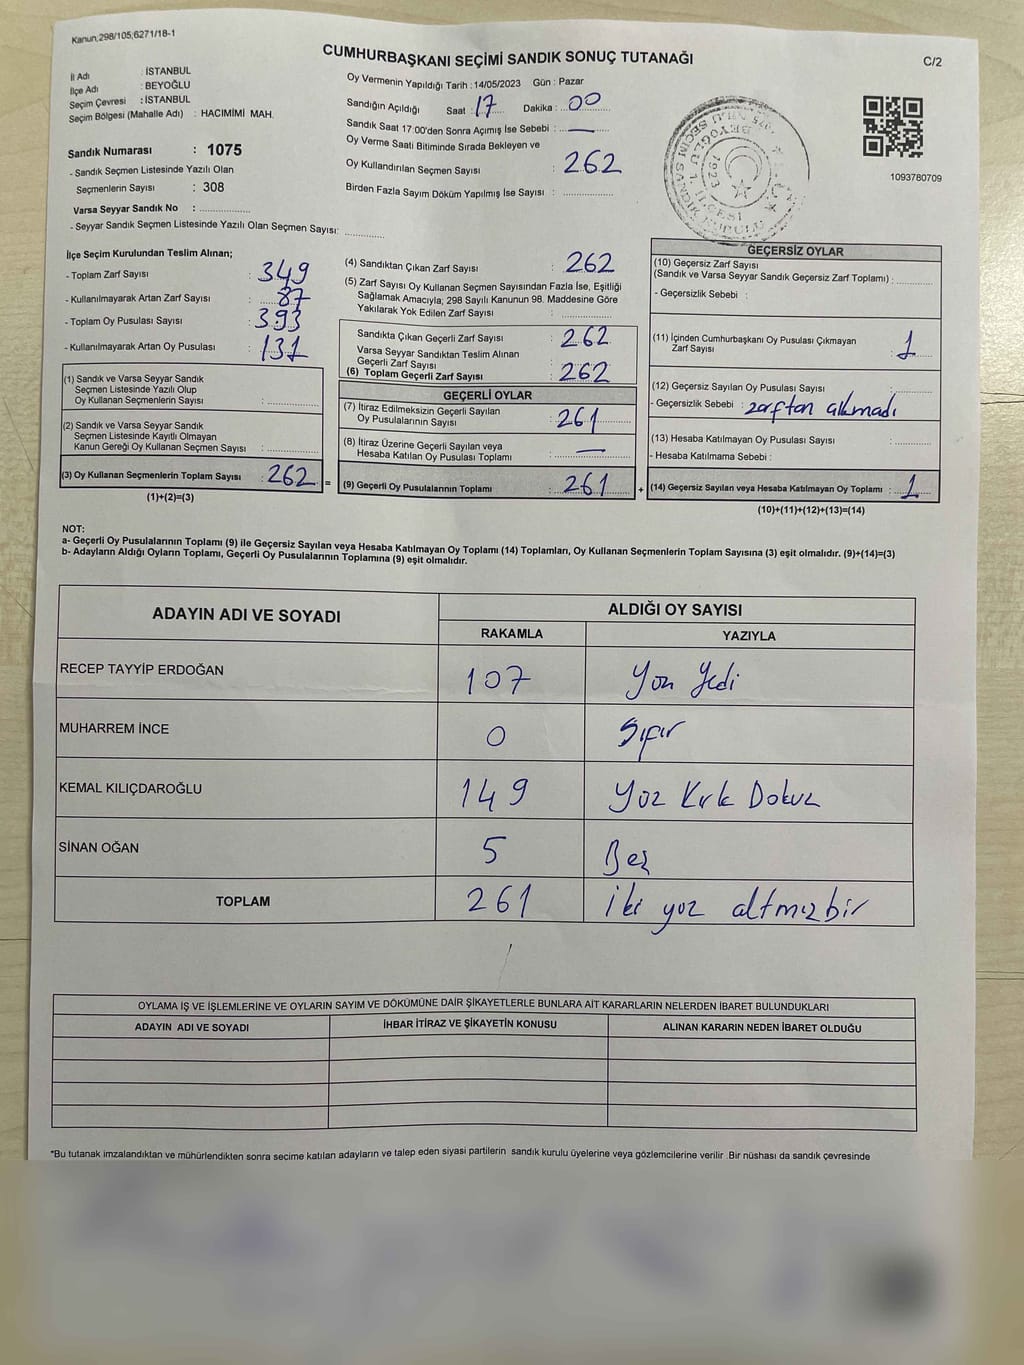 Kanun;298/105;6271/18-1
CUMHURBAŞKANI SEÇİMİ SANDIK SONUÇ TUTANAĞI
C/2
İl Adı : İSTANBUL
İlçe Adı : BEYOĞLU
Seçim Çevresi : İSTANBUL
Seçim Bölgesi (Mahalle Adı) : HACIMİMİ MAH.
Sandık Numarası : 1075
- Sandık Seçmen Listesinde Yazılı Olan
Seçmenlerin Sayısı : 308
Varsa Seyyar Sandık No :
- Seyyar Sandık Seçmen Listesinde Yazılı Olan Seçmen Sayısı:
Oy Vermenin Yapıldığı Tarih : 14/05/2023 Gün : Pazar
Sandığın Açıldığı Saat : 17 Dakika : 00
Sandık Saat 17:00'den Sonra Açımış İse Sebebi : —
Oy Verme Saati Bitiminde Sırada Bekleyen ve
Oy Kullandırılan Seçmen Sayısı : 262
Birden Fazla Sayım Döküm Yapılmış İse Sayısı :
1093780709
İlçe Seçim Kurulundan Teslim Alınan;
- Toplam Zarf Sayısı : 349
- Kullanılmayarak Artan Zarf Sayısı : 87
- Toplam Oy Pusulası Sayısı : 393
- Kullanılmayarak Artan Oy Pusulası : 131
(1) Sandık ve Varsa Seyyar Sandık
Seçmen Listesinde Yazılı Olup
Oy Kullanan Seçmenlerin Sayısı :
(2) Sandık ve Varsa Seyyar Sandık
Seçmen Listesinde Kayıtlı Olmayan
Kanun Gereği Oy Kullanan Seçmen Sayısı :
(3) Oy Kullanan Seçmenlerin Toplam Sayısı : 262 =
(1)+(2)=(3)
(4) Sandıktan Çıkan Zarf Sayısı : 262
(5) Zarf Sayısı Oy Kullanan Seçmen Sayısından Fazla İse, Eşitliği
Sağlamak Amacıyla; 298 Sayılı Kanunun 98. Maddesine Göre
Yakılarak Yok Edilen Zarf Sayısı :
Sandıkta Çıkan Geçerli Zarf Sayısı : 262
Varsa Seyyar Sandıktan Teslim Alınan
Geçerli Zarf Sayısı :
(6) Toplam Geçerli Zarf Sayısı : 262
GEÇERLİ OYLAR
(7) İtiraz Edilmeksizin Geçerli Sayılan
Oy Pusulalarının Sayısı : 261
(8) İtiraz Üzerine Geçerli Sayılan veya
Hesaba Katılan Oy Pusulası Toplamı : —
(9) Geçerli Oy Pusulalarının Toplamı : 261 +
GEÇERSİZ OYLAR
(10) Geçersiz Zarf Sayısı
(Sandık ve Varsa Seyyar Sandık Geçersiz Zarf Toplamı) :
- Geçersizlik Sebebi :
(11) İçinden Cumhurbaşkanı Oy Pusulası Çıkmayan
Zarf Sayısı : 1
(12) Geçersiz Sayılan Oy Pusulası Sayısı :
- Geçersizlik Sebebi : zarftan
(13) Hesaba Katılmayan Oy Pusulası Sayısı :
- Hesaba Katılmama Sebebi :
(14) Geçersiz Sayılan veya Hesaba Katılmayan Oy Toplamı : 1
(10)+(11)+(12)+(13)=(14)
NOT:
a- Geçerli Oy Pusulalarının Toplamı (9) ile Geçersiz Sayılan veya Hesaba Katılmayan Oy Toplamı (14) Toplamları, Oy Kullanan Seçmenlerin Toplam Sayısına (3) eşit olmalıdır. (9)+(14)=(3)
b- Adayların Aldığı Oyların Toplamı, Geçerli Oy Pusulalarının Toplamına (9) eşit olmalıdır.
ADAYIN ADI VE SOYADI ALDIĞI OY SAYISI
RAKAMLA YAZIYLA
RECEP TAYYİP ERDOĞAN 107 Yon Yedi
MUHARREM İNCE 0 Sıfır
KEMAL KILIÇDAROĞLU 149 Yoz Kırk Dokuz
SİNAN OĞAN 5 Beş
TOPLAM 261 İki yoz altmızbir
OYLAMA İŞ VE İŞLEMLERİNE VE OYLARIN SAYIM VE DÖKÜMÜNE DAİR ŞİKAYETLERLE BUNLARA AİT KARARLARIN NELERDEN İBARET BULUNDUKLARI
ADAYIN ADI VE SOYADI İHBAR İTİRAZ VE ŞİKAYETİN KONUSU ALINAN KARARIN NEDEN İBARET OLDUĞU
*Bu tutanak imzalandıktan ve mühürlendikten sonra seçime katılan adayların ve talep eden siyasi partilerin sandık kurulu üyelerine veya gözlemcilerine verilir .Bir nüshası da sandık çevresinde